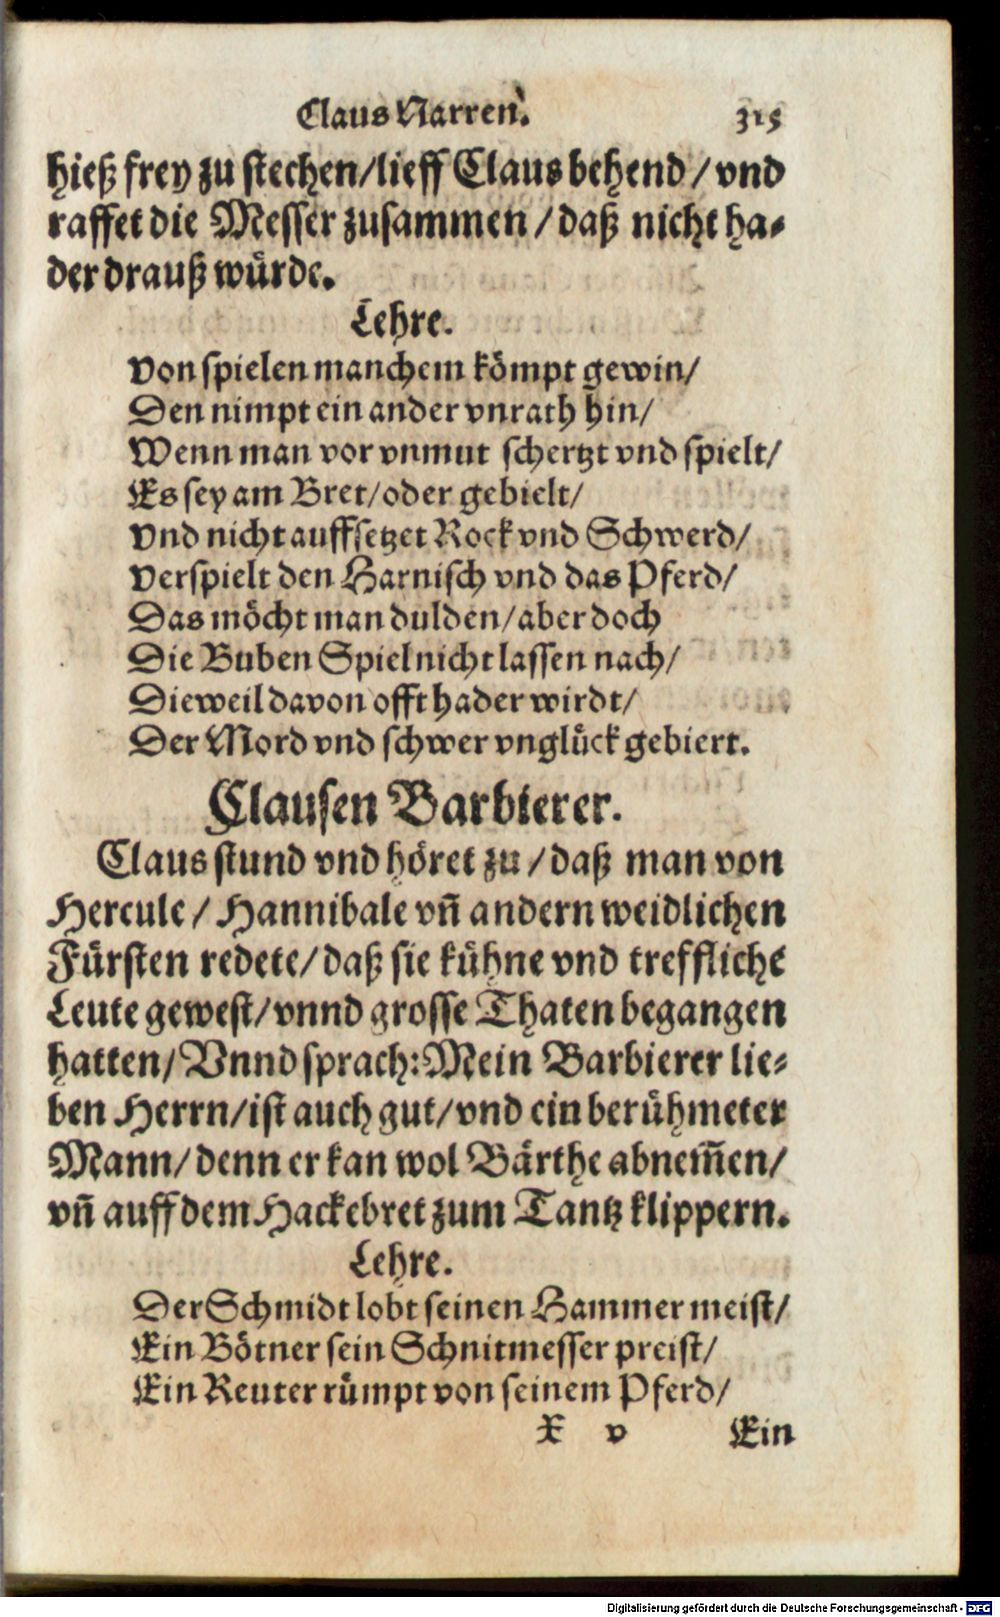 Claus Narren. 315
hieß frey zu stechen/lieff Claus behend/vnd
raffet die Messer zusammen/daß nicht ha-
der drauß würde.
Lehre.
Von spielen manchem kömpt gewin/
Den nimpt ein ander vnrath hin/
Wenn man vor vnmut schertzt vnd spielt/
Es sey am Bret/oder gebielt/
Vnd nicht auffsetzet Rock vnd Schwerd/
Verspielt den Harnisch vnd das Pferd/
Das möcht man dulden/aber doch
Die Buben Spiel nicht lassen nach/
Dieweil davon offt hader wirdt/
Der Mord vnd schwer vnglück gebiert.
Clausen Barbierer.
Claus stund vnd höret zu/daß man von
Hercule/Hannibale vñ andern weidlichen
Fürsten redete/daß sie kühne vnd treffliche
Leute gewest/vnnd grosse Thaten begangen
hatten/Vnnd sprach: Mein Barbierer lie-
ben Herrn/ist auch gut/vnd ein berühmeter
Mann/denn er kan wol Bärthe abnem̃en/
vñ auff dem Hackebret zum Tantz klippern.
Lehre.
Der Schmidt lobt seinen Hammer meist/
Ein Bötner sein Schnitmesser preist/
Ein Reuter rümpt von seinem Pferd/
X v Ein
Digitalisierung gefördert durch die Deutsche Forschungsgemeinschaft - DFG